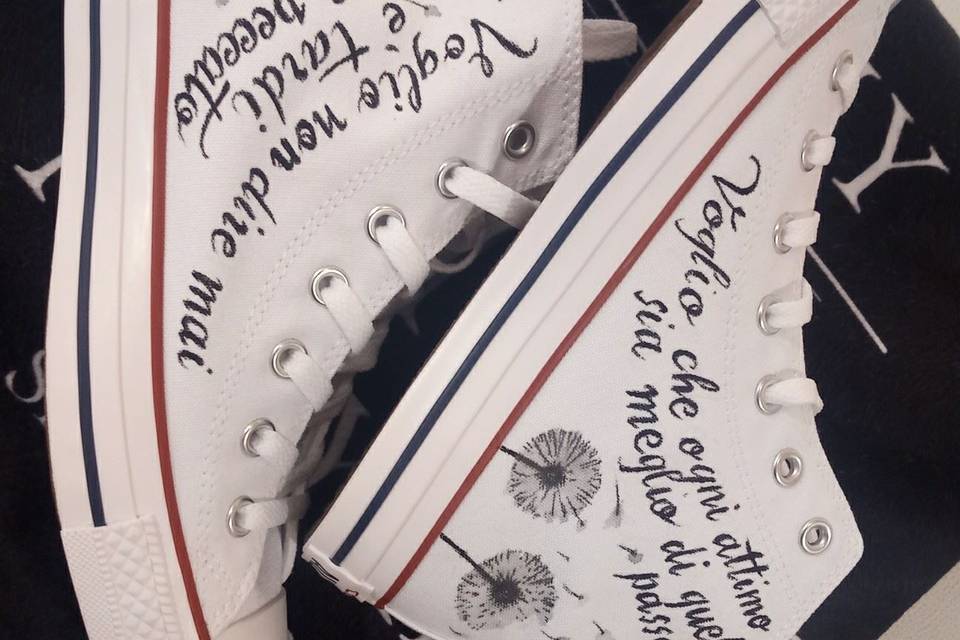 Voglio non dire mai
e tardi
peccato
Voglio che ogni attimo
sia meglio di
Y